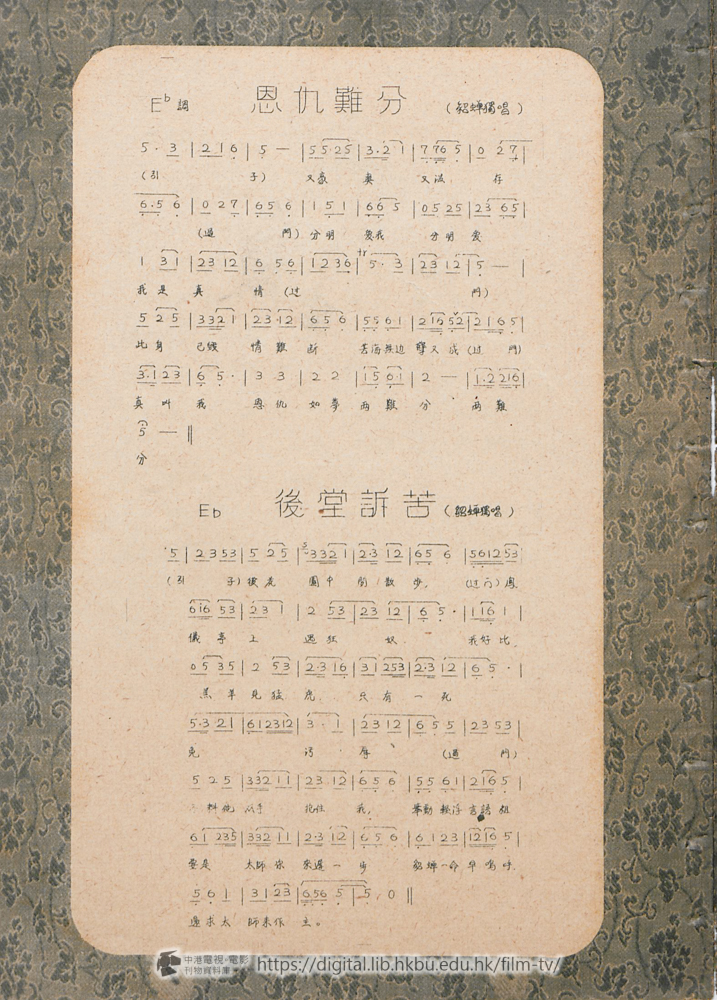 E♭ 調 恩仇難分 (貂蟬獨唱)
5· 3 | 2 1 6 | 5 — | 5 5·2 5 | 3·2 1 | 7 7 6 5 | 0 2 7 |
(引 子) 又 又 存
6·5 6 | 0 2 7 | 6 5 6 | 1 5 1 | 6 6 5 | 0 5 2 5 | 2 3 6 5 |
(過 門) 分明 愛我 分明 愛
1 3 1 | 2 3 1 2 | 6 5 6 | 1 2 3 6 | 5· 3 | 2 3 1 2 | 5 — |
我是 真 情 (过 門)
5 2 5 | 3 3 2 1 | 2 3·1 2 | 6 5 6 | 5 5 6 1 | 2 1 6 5 2 | 2 1 6 5 |
此身 已 情難 断 苦海無边 孽又成 (过 門)
3·1 2 3 | 6 5· | 3 3 | 2 2 | 1 5 6·1 | 2 — | 1·2 2 1 6 |
真叫 我 恩仇 如夢 兩難 分 兩難
5 — ‖
分
E♭ 後堂訴苦 (貂蟬獨唱)
5 | 2 3 5 3 | 5 2 5 | 3 3 2 1 | 2·3 1 2 | 6 5 6 | 5 6 1 2 5 3 |
(引 子) 後花 園中 閒散 步, (过门) 鳳
6 1 6 5 3 | 2 3 1 | 2 5 3 | 2 3 1 2 | 6 5· | 1 1 6 1 |
儀亭 上 遇狂 奴. 我好比
0 5 3 5 | 2 5 3 | 2·3 1 6 | 3 1 2 5 3 | 2·3 1 2 | 6 5· |
羔羊 見猛 虎, 只有 一死
5·3 2 1 | 6 1 2 3 1 2 | 3· 1 | 2 3 1 2 | 6 5 5 | 2 3 5 3 |
免 污 辱 (過 門)
5 2 5 | 3 3 2 1 1 | 2 3·1 2 | 6 5 6 | 5 5 6 1 | 2 1 6 5 |
料他 手 抱住 我, 舉動輕浮言語粗
6 1 2 3 5 | 3 3 2 1 1 | 2·3 1 2 | 6 5 6 | 6 1 2 3 | 1 2 1 6 5 |
要是 太師你 來遲一 步 貂蟬一命早嗚呼
5 6 1 | 3 1 2 3 | 6·5 6 5 | 5, 0 ‖
求太 師來作 主。
中港電視·電影
刊物資料庫
https://digital.lib.hkbu.edu.hk/film-tv/